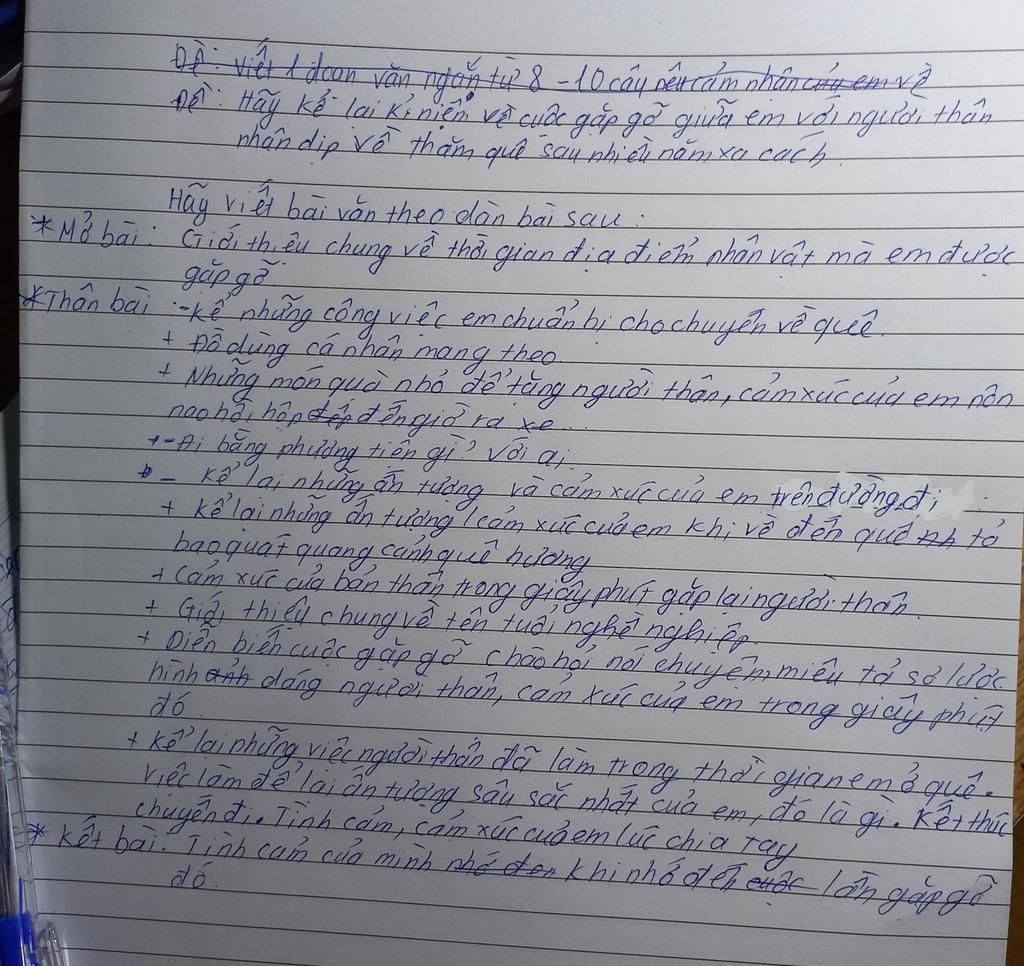 Đề: Viết 1 đoạn văn ngắn từ 8 - 10 câu nêu cảm nhận của em về
Đề: Hãy kể lại kỉ niệm về cuộc gặp gỡ giữa em với người thân
nhân dịp về thăm quê sau nhiều năm xa cách.
Hãy viết bài văn theo dàn bài sau:
* Mở bài: Giới thiệu chung về thời gian địa điểm nhân vật mà em được
gặp gỡ.
* Thân bài: - Kể những công việc em chuẩn bị cho chuyến về quê.
+ Đồ dùng cá nhân mang theo.
+ Những món quà nhỏ để tặng người thân, cảm xúc của em nôn
nao hồi hộp đếp đến giờ ra xe...
+ - Đi bằng phương tiện gì? Với ai.
- Kể lại những ấn tượng và cảm xúc của em trên đường đi
+ Kể lại những ấn tượng / cảm xúc của em khi về đến quê nh tả
bao quát quang cảnh quê hương
+ Cảm xúc của bản thân trong giây phút gặp lại người thân.
+ Giới thiệu chung về tên tuổi nghề nghiệp.
+ Diễn biến cuộc gặp gỡ chào hỏi nói chuyện miêu tả sơ lược
hình ảnh dáng người thân, cảm xúc của em trong giây phút
đó.
+ Kể lại những việc người thân đã làm trong thời gian em ở quê.
Việc làm để lại ấn tượng sâu sắc nhất của em, đó là gì. Kết thúc
chuyến đi. Tình cảm, cảm xúc của em lúc chia tay
* Kết bài. Tình cảm của mình nhớ đen khi nhớ đến cuộc lần gặp gỡ
đó.